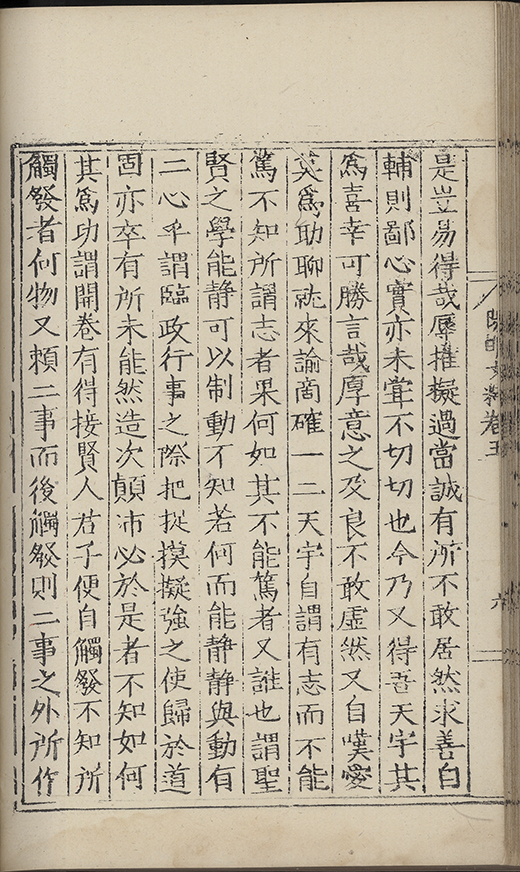 陽明文類卷五
六
是豈易得哉辱推擬過當誠有所不敢居然求善自
輔則鄙心實亦未甞不切切也今乃又得吾天宇其
爲喜幸可勝言哉厚意之及良不敢虛然又自嘆愛
莫爲助聊就來諭商確一二天宇自謂有志而不能
篤不知所謂志者果何如其不能篤者又誰也謂聖
賢之學能静可以制動不知若何而能静静與動有
二心乎謂臨政行事之際把捉摸擬強之使歸於道
固亦卒有所未能然造次顛沛必於是者不知如何
其爲功謂開卷有得接賢人君子便自觸發不知所
觸發者何物又頼二事而後觸發則二事之外所作